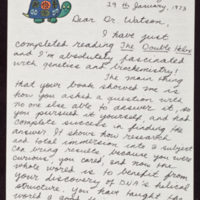 29th January, 1973
Dear Dr Watson,
I have just
completed reading The Double Helix
and I'm absolutely fascinated
with genetics and biochemistry!
The main thing
that your book showed me is
how you asked a question with
no one else able to answer it, so
you pursued it yourself, and had
complete success in finding the
answer. It shows how research
and total immersion into a subject
can bring results, because you were
curious, you cared, and now the
whole world is to benefit from
your discovery of DNA's helical
structure. You have taught the